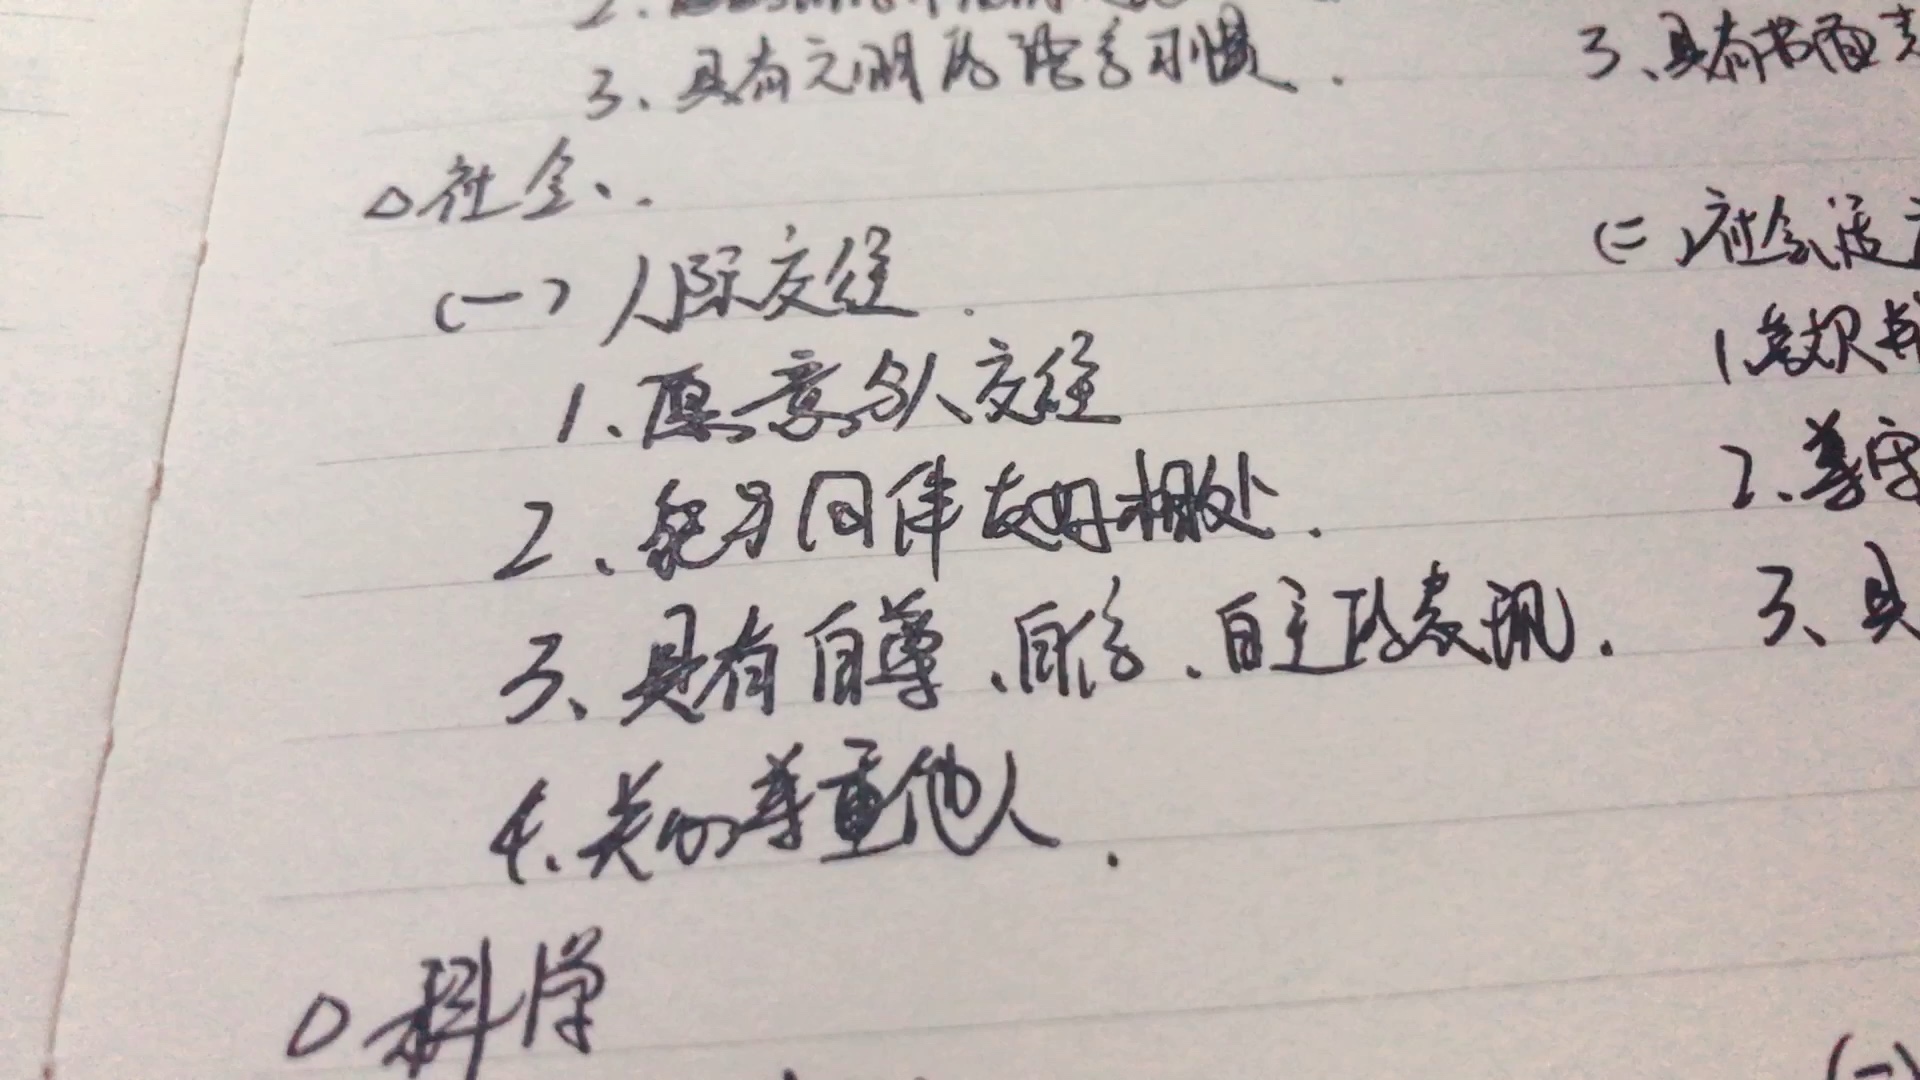 3、具有文明的语言习惯.
3、具有书面
△社会.
(一)人际交往.
(二)社会适
1、愿意与人交往
1.喜欢
2、能与同伴友好相处.
2、遵守
3、具有自尊、自信、自主的表现.
3、具
4、关心尊重他人.
△科学
(一)